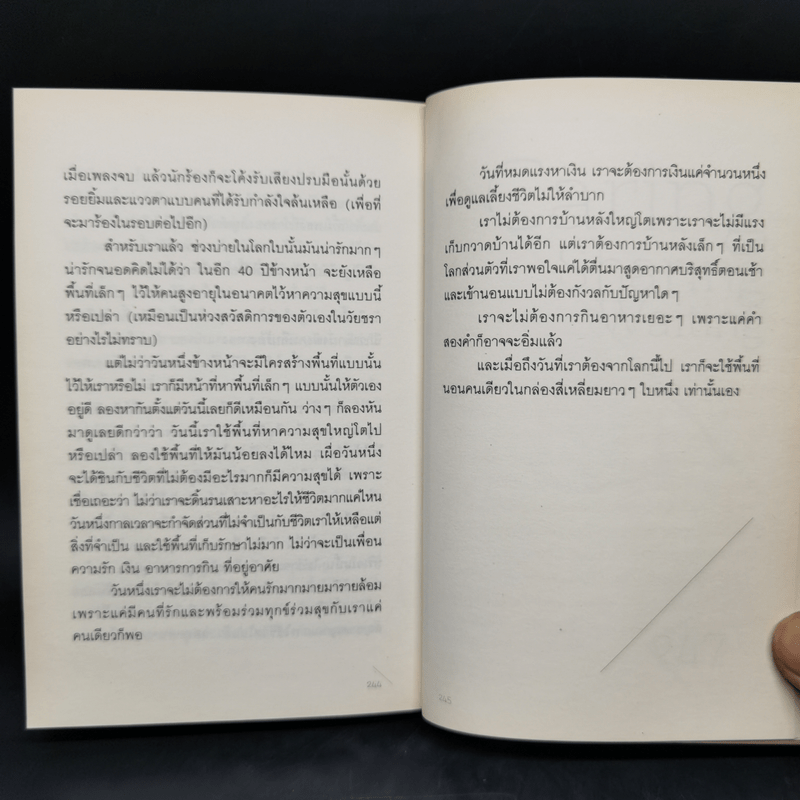 เมื่อเพลงจบ แล้วนักร้องก็จะโค้งรับเสียงปรบมือนั้นด้วย
รอยยิ้มและแววตาแบบคนที่ได้รับกำลังใจล้นเหลือ (เพื่อที่
จะมาร้องในรอบต่อไปอีก)
สำหรับเราแล้ว ช่วงบ่ายในโลกใบนั้นมันน่ารักมากๆ
น่ารักจนอดคิดไม่ได้ว่า ในอีก 40 ปีข้างหน้า จะยังเหลือ
พื้นที่เล็กๆ ไว้ให้คนสูงอายุในอนาคตไว้หาความสุขแบบนี้
หรือเปล่า (เหมือนเป็นห่วงสวัสดิการของตัวเองในวัยชรา
อย่างไรไม่ทราบ)
แต่ไม่ว่าวันหนึ่งข้างหน้าจะมีใครสร้างพื้นที่แบบนั้น
ไว้ให้เราหรือไม่ เราก็มีหน้าที่หาพื้นที่เล็กๆ แบบนั้นให้ตัวเอง
อยู่ดี ลองหากันตั้งแต่วันนี้เลยก็ดีเหมือนกัน ว่างๆ ก็ลองหัน
มาดูเลยดีกว่าว่า วันนี้เราใช้พื้นที่หาความสุขใหญ่โตไป
หรือเปล่า ลองใช้พื้นที่ให้มันน้อยลงได้ไหม เผื่อวันหนึ่ง
จะได้ชินกับชีวิตที่ไม่ต้องมีอะไรมากก็มีความสุขได้ เพราะ
เชื่อเถอะว่า ไม่ว่าเราจะดิ้นรนเสาะหาอะไรให้ชีวิตมากแค่ไหน
วันหนึ่งกาลเวลาจะกำจัดส่วนที่ไม่จำเป็นกับชีวิตเราให้เหลือแต่
สิ่งที่จำเป็น และใช้พื้นที่เก็บรักษาไม่มาก ไม่ว่าจะเป็นเพื่อน
ความรัก เงิน อาหารการกิน ที่อยู่อาศัย
วันหนึ่งเราจะไม่ต้องการให้คนรักมากมายมารายล้อม
เพราะแค่มีคนที่รักและพร้อมร่วมทุกข์ร่วมสุขกับเราแค่
คนเดียวก็พอ
244
วันที่หมดแรงหาเงิน เราจะต้องการเงินแค่จำนวนหนึ่ง
เพื่อดูแลเลี้ยงชีวิตไม่ให้ลำบาก
เราไม่ต้องการบ้านหลังใหญ่โตเพราะเราจะไม่มีแรง
เก็บกวาดบ้านได้อีก แต่เราต้องการบ้านหลังเล็กๆ ที่เป็น
โลกส่วนตัวที่เราพอใจแค่ได้ตื่นมาสูดอากาศบริสุทธิ์ตอนเช้า
และเข้านอนแบบไม่ต้องกังวลกับปัญหาใดๆ
เราจะไม่ต้องการกินอาหารเยอะๆ เพราะแค่คำ
สองคำก็อาจจะอิ่มแล้ว
และเมื่อถึงวันที่เราต้องจากโลกนี้ไป เราก็จะใช้พื้นที่
นอนคนเดียวในกล่องสี่เหลี่ยมยาวๆ ใบหนึ่ง เท่านั้นเอง
245